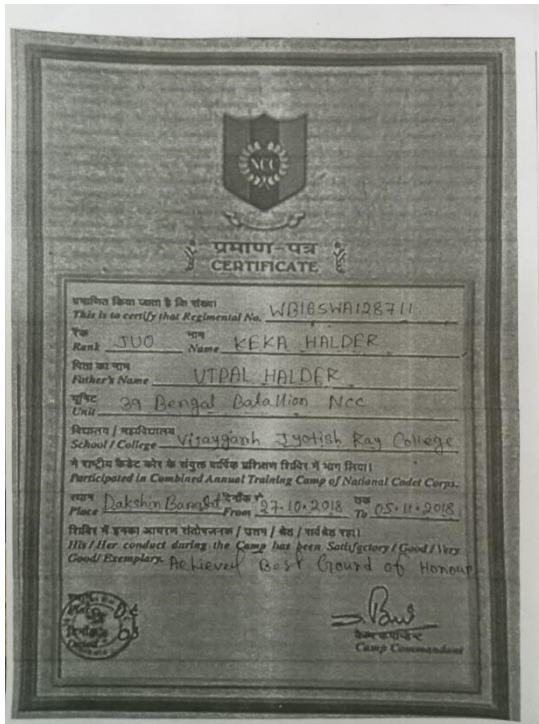 NCC
प्रमाण-पत्र
CERTIFICATE
प्रमाणित किया जाता है कि संख्या
This is to certify that Regimental No. WB16SWA128711
रैंक नाम
Rank JUO Name KEKA HALDER
पिता का नाम
Father's Name UTPAL HALDER
यूनिट
Unit 39 Bengal Batallion Ncc
विद्यालय / महाविद्यालय
School / College Vijaygarh Jyotish Ray College
ने राष्ट्रीय कैडेट कोर के संयुक्त वार्षिक प्रशिक्षण शिविर में भाग लिया।
Participated in Combined Annual Training Camp of National Cadet Corps.
स्थान दिनाँक से तक
Place Dakshin From 27.10.2018 To 05.11.2018
शिविर में इनका आचरण संतोषजनक / उत्तम / श्रेष्ठ / सर्वश्रेष्ठ रहा।
His / Her conduct during the Camp has been Satisfactory / Good / Very
Good / Exemplary. Achieved Best Gourd of Honour
कैम्प कमांडेंट
Camp Commandant